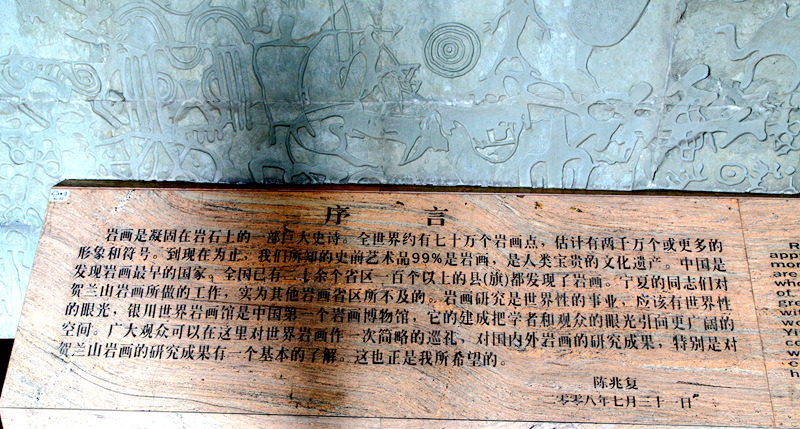 序 言
岩画是凝固在岩石上的一部巨大史诗。全世界约有七十万个岩画点，估计有两千万个或更多的
形象和符号。到现在为止，我们所知的史前艺术品99%是岩画，是人类宝贵的文化遗产。中国是
发现岩画最早的国家。全国已有二十余个省区一百个以上的县(旗)都发现了岩画。宁夏的同志们对
贺兰山岩画所做的工作，实为其他岩画省区所不及的。岩画研究是世界性的事业，应该有世界性
的眼光，银川世界岩画馆是中国第一个岩画博物馆，它的建成把学者和观众的眼光引向更广阔的
空间。广大观众可以在这里对世界岩画作一次简略的巡礼，对国内外岩画的研究成果，特别是对
贺兰山岩画的研究成果有一个基本的了解。这也正是我所希望的。
陈兆复
二零零八年七月三十一日